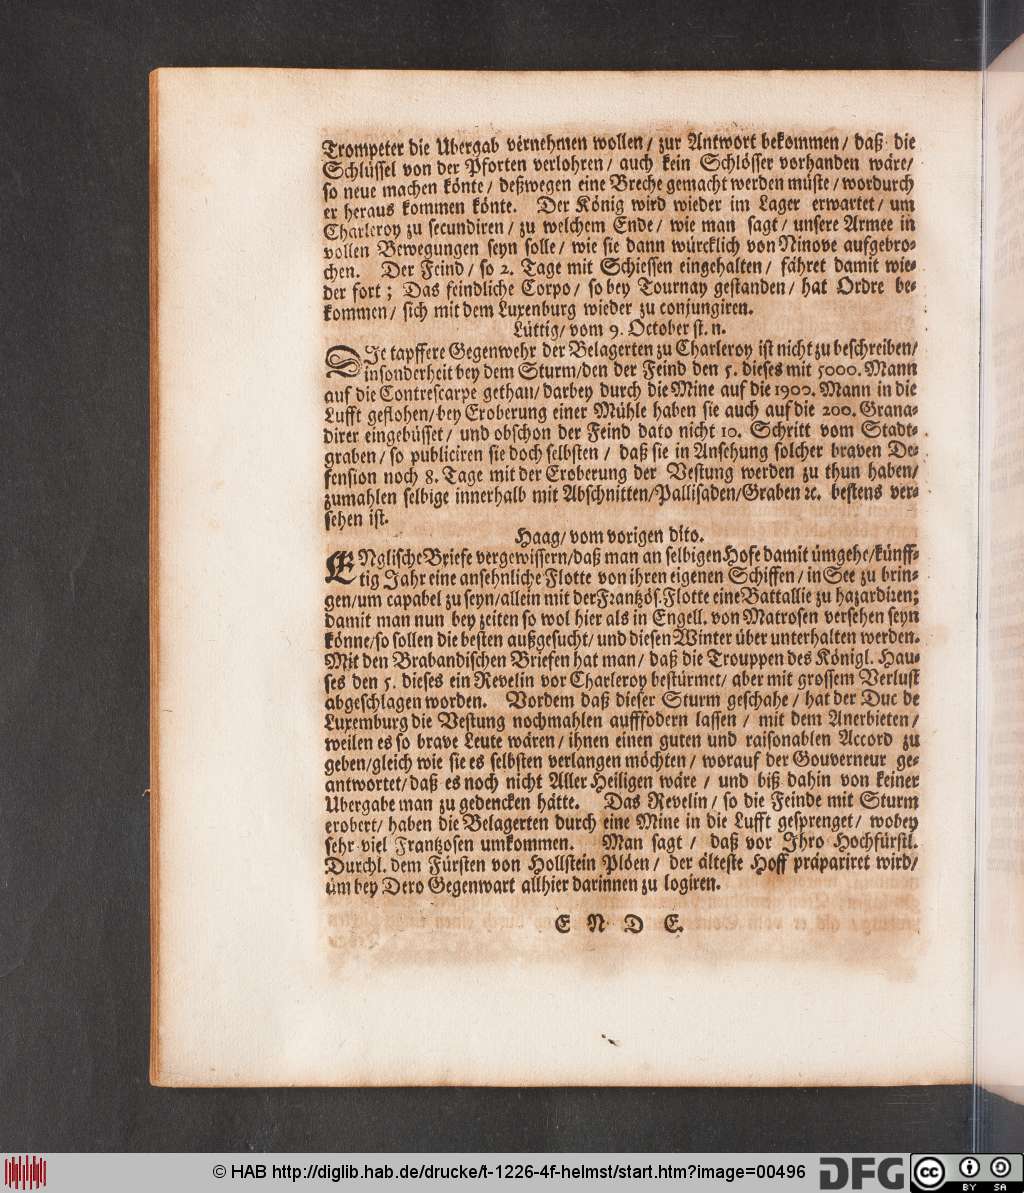 Trompeter die Ubergab vernehmen wollen / zur Antwort bekommen / daß die
Schlüssel von der Pforten verlohren / auch kein Schlösser vorhanden wäre /
so neue machen könte / deßwegen eine Breche gemacht werden müste / wordurch
er heraus kommen könte. Der König wird wieder im Lager erwartet / um
Charleroy zu secundiren / zu welchem Ende / wie man sagt / unsere Armee in
vollen Bewegungen seyn solle / wie sie dann würcklich von Ninove aufgebro-
chen. Der Feind / so 2. Tage mit Schiessen eingehalten / fähret damit wie-
der fort ; Das feindliche Corpo / so bey Tournay gestanden / hat Ordre be-
kommen / sich mit dem Luxenburg wieder zu conjungiren.
Lüttig / vom 9. October st. n.
DIe tapffere Gegenwehr der Belagerten zu Charleroy ist nicht zu beschreiben /
insonderheit bey dem Sturm / den der Feind den 5. dieses mit 5000. Mann
auf die Contrescarpe gethan / darbey durch die Mine auf die 1900. Mann in die
Lufft geflohen / bey Eroberung einer Mühle haben sie auch auf die 200. Grana-
direr eingebüsset / und obschon der Feind dato nicht 10. Schritt vom Stadt-
graben / so publiciren sie doch selbsten / daß sie in Ansehung solcher braven De-
fension noch 8. Tage mit der Eroberung der Vestung werden zu thun haben /
zumahlen selbige innerhalb mit Abschnitten / Pallisaden / Graben ꝛc. bestens ver-
sehen ist.
Haag / vom vorigen dito.
ENglische Briefe vergewissern / daß man an selbigen Hofe damit ümgehe / künff-
tig Jahr eine ansehnliche Flotte von ihren eigenen Schiffen / in See zu brin-
gen / um capabel zu seyn / allein mit der Frantzös. Flotte eine Battallie zu hazardiren;
damit man nun bey zeiten so wol hier als in Engell. von Matrosen versehen seyn
könne / so sollen die besten außgesucht / und diesen Winter über unterhalten werden.
Mit den Brabandischen Briefen hat man / daß die Trouppen des Königl. Hau-
ses den 5. dieses ein Revelin vor Charleroy bestürmet / aber mit grossem Verlust
abgeschlagen worden. Vordem daß dieser Sturm geschahe / hat der Duc de
Luxemburg die Vestung nochmahlen aufffodern lassen / mit dem Anerbieten /
weilen es so brave Leute wären / ihnen einen guten und raisonablen Accord zu
geben / gleich wie sie es selbsten verlangen möchten / worauf der Gouverneur ge-
antwortet / daß es noch nicht Aller Heiligen wäre / und biß dahin von keiner
Ubergabe man zu gedencken hätte. Das Revelin / so die Feinde mit Sturm
erobert / haben die Belagerten durch eine Mine in die Lufft gesprenget / wobey
sehr viel Frantzosen umkommen. Man sagt / daß vor Ihro Hochfürstl.
Durchl. dem Fürsten von Hollstein Plöen / der älteste Hoff präpariret wird /
üm bey Dero Gegenwart allhier darinnen zu logiren.
E N D E.
© HAB http://diglib.hab.de/drucke/t-1226-4f-helmst/start.htm?image=00496
DFG
cc BY SA